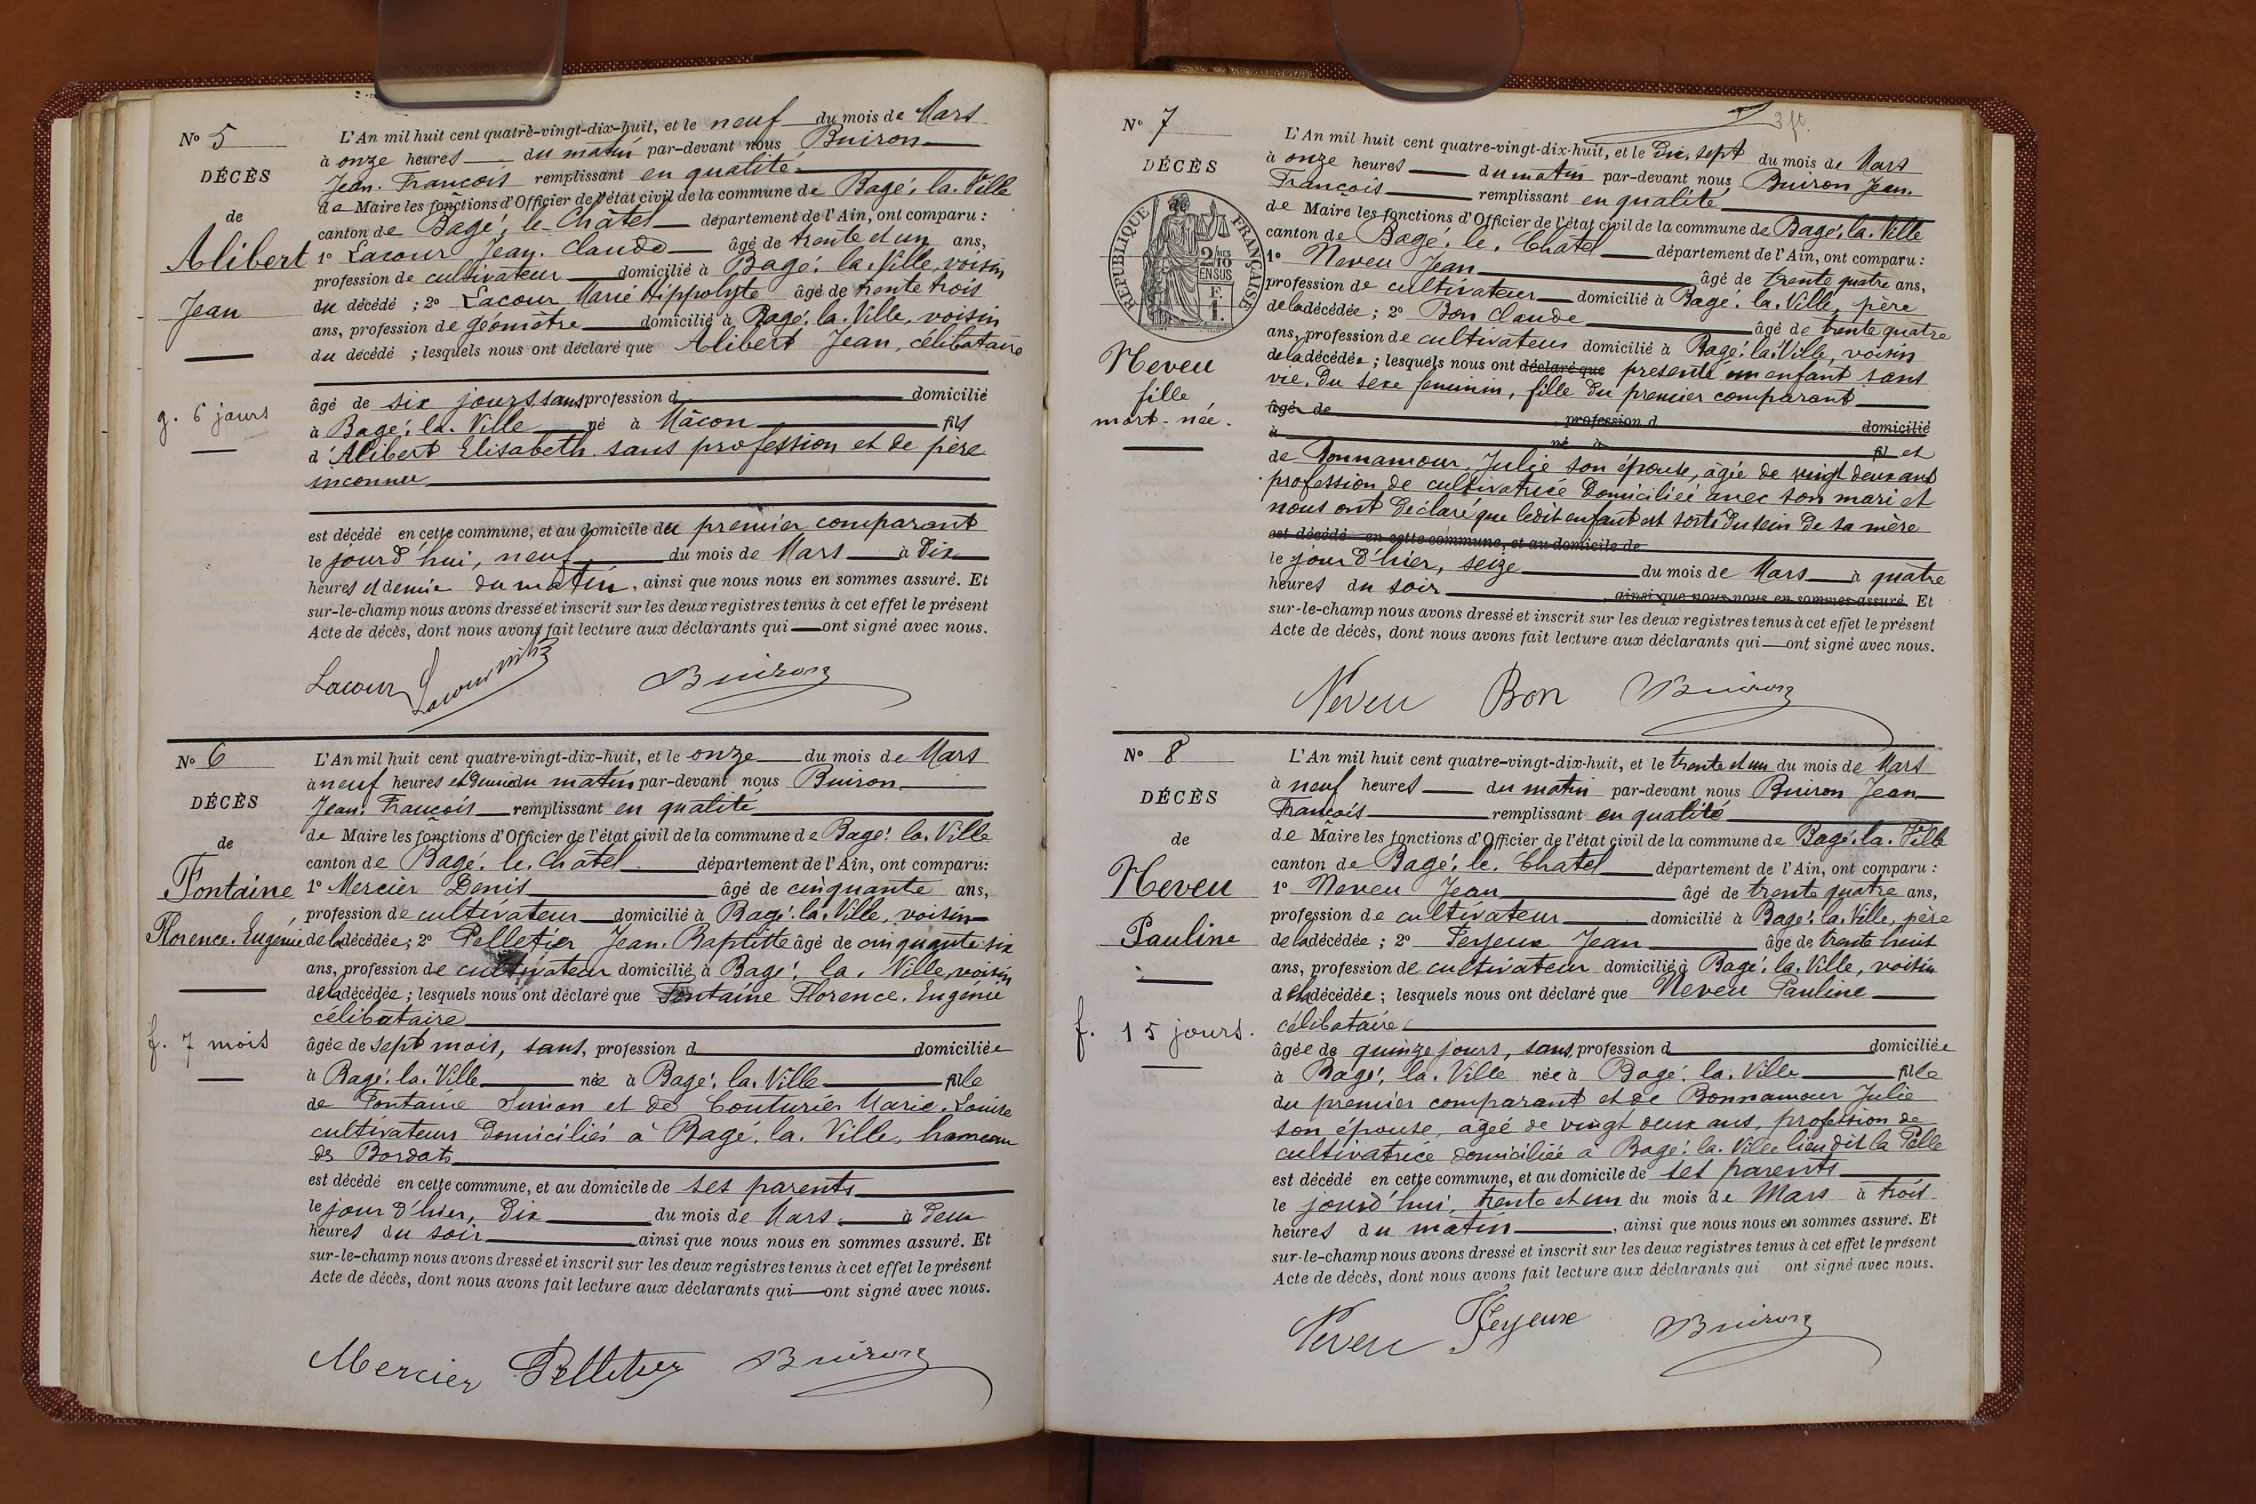 N° 5
DÉCÈS
de
Alibert
Jean
g. 6 jours
L'An mil huit cent quatre-vingt-dix-huit, et le neuf du mois de Mars
à onze heures du matin par-devant nous Buiron
Jean. François remplissant en qualité
de Maire les fonctions d'Officier de l'état civil de la commune de Bagé. la. Ville
canton de Bagé. le. Châtel département de l'Ain, ont comparu :
1° Lacour Jean. Claude âgé de trente et un ans,
profession de cultivateur domicilié à Bagé. la. Ville, voisin
du décédé ; 2° Lacour Marie Hippolyte âgé de trente trois
ans, profession de géomètre domicilié à Bagé. la. Ville, voisin
du décédé ; lesquels nous ont déclaré que Alibert Jean, célibataire
âgé de six jours, sans profession d domicilié
à Bagé. la. Ville né à Mâcon fils
d'Alibert Elisabeth sans profession et de père
inconnu
est décédé en cette commune, et au domicile du premier comparant
le jourd'hui, neuf du mois de Mars à dix
heures et demie du matin, ainsi que nous nous en sommes assuré. Et
sur-le-champ nous avons dressé et inscrit sur les deux registres tenus à cet effet le présent
Acte de décès, dont nous avons fait lecture aux déclarants qui ont signé avec nous.
Lacour Lacour Buiron
N° 6
DÉCÈS
de
Fontaine
Florence. Eugénie
f. 7 mois
L'An mil huit cent quatre-vingt-dix-huit, et le onze du mois de Mars
à neuf heures et demie du matin par-devant nous Buiron
Jean. François remplissant en qualité
de Maire les fonctions d'Officier de l'état civil de la commune de Bagé. la. Ville
canton de Bagé. le. Châtel département de l'Ain, ont comparu :
1° Mercier Denis âgé de cinquante ans,
profession de cultivateur domicilié à Bagé. la. Ville, voisin
de la décédée ; 2° Pelletier Jean. Baptitte âgé de cinquante six
ans, profession de cultivateur domicilié à Bagé. la. Ville, voisin
de la décédée ; lesquels nous ont déclaré que Fontaine Florence. Eugénie
célibataire
âgée de sept mois, sans, profession d domiciliée
à Bagé. la. Ville née à Bagé. la. Ville fille
de Fontaine Simon et de Couturier Marie. Louise
cultivateurs domiciliés à Bagé. la. Ville, hameau
des Bordats
est décédé en cette commune, et au domicile de ses parents
le jour d'hier, dix du mois de Mars à deux
heures du soir ainsi que nous nous en sommes assuré. Et
sur-le-champ nous avons dressé et inscrit sur les deux registres tenus à cet effet le présent
Acte de décès, dont nous avons fait lecture aux déclarants qui ont signé avec nous.
Mercier Pelletier Buiron
3 ft.
N° 7
DÉCÈS
de
RÉPUBLIQUE FRANÇAISE
2/10
EN SUS
F.
1.
Neveu
fille
mort-née.
L'An mil huit cent quatre-vingt-dix-huit, et le dix. sept du mois de Mars
à onze heures du matin par-devant nous Buiron Jean.
François remplissant en qualité
de Maire les fonctions d'Officier de l'état civil de la commune de Bagé. la. Ville
canton de Bagé. le. Châtel département de l'Ain, ont comparu :
1° Neveu Jean âgé de trente quatre ans,
profession de cultivateur domicilié à Bagé. la. Ville, père
de la décédée ; 2° Bon Claude âgé de trente quatre
ans, profession de cultivateur domicilié à Bagé. la. Ville, voisin
de la décédée ; lesquels nous ont déclaré que présenté un enfant sans
vie, du sexe féminin, fille du premier comparant
âgé de profession d domicilié
à né à fil et
de Bonnamour Julie son épouse, âgée de vingt deux ans
profession de cultivatrice domiciliée avec son mari et
nous ont déclaré que ledit enfant est sorti du sein de sa mère
est décédé en cette commune, et au domicile de
le jour d'hier, seize du mois de Mars à quatre
heures du soir, ainsi que nous nous en sommes assuré. Et
sur-le-champ nous avons dressé et inscrit sur les deux registres tenus à cet effet le présent
Acte de décès, dont nous avons fait lecture aux déclarants qui ont signé avec nous.
Neveu Bon Buiron
N° 8
DÉCÈS
de
Neveu
Pauline
f. 15 jours.
L'An mil huit cent quatre-vingt-dix-huit, et le trente et un du mois de Mars
à neuf heures du matin par-devant nous Buiron Jean
François remplissant en qualité
de Maire les fonctions d'Officier de l'état civil de la commune de Bagé. la. Ville
canton de Bagé. le. Chatel département de l'Ain, ont comparu :
1° Neveu Jean âgé de trente quatre ans,
profession de cultivateur domicilié à Bagé. la. Ville, père
de la décédée ; 2° Feyeux Jean âgé de trente huit
ans, profession de cultivateur domicilié à Bagé. la. Ville, voisin
de la décédée ; lesquels nous ont déclaré que Neveu Pauline
célibataire
âgée de quinze jours, sans, profession d domiciliée
à Bagé. la. Ville née à Bagé. la. Ville fille
du premier comparant et de Bonnamour Julie
son épouse, âgée de vingt deux ans, profession de
cultivatrice domiciliée à Bagé. la. Ville lieu dit la Pelle
est décédé en cette commune, et au domicile de ses parents
le jourd'hui, trente et un du mois de Mars à trois
heures du matin, ainsi que nous nous en sommes assuré. Et
sur-le-champ nous avons dressé et inscrit sur les deux registres tenus à cet effet le présent
Acte de décès, dont nous avons fait lecture aux déclarants qui ont signé avec nous.
Neveu Feyeux Buiron